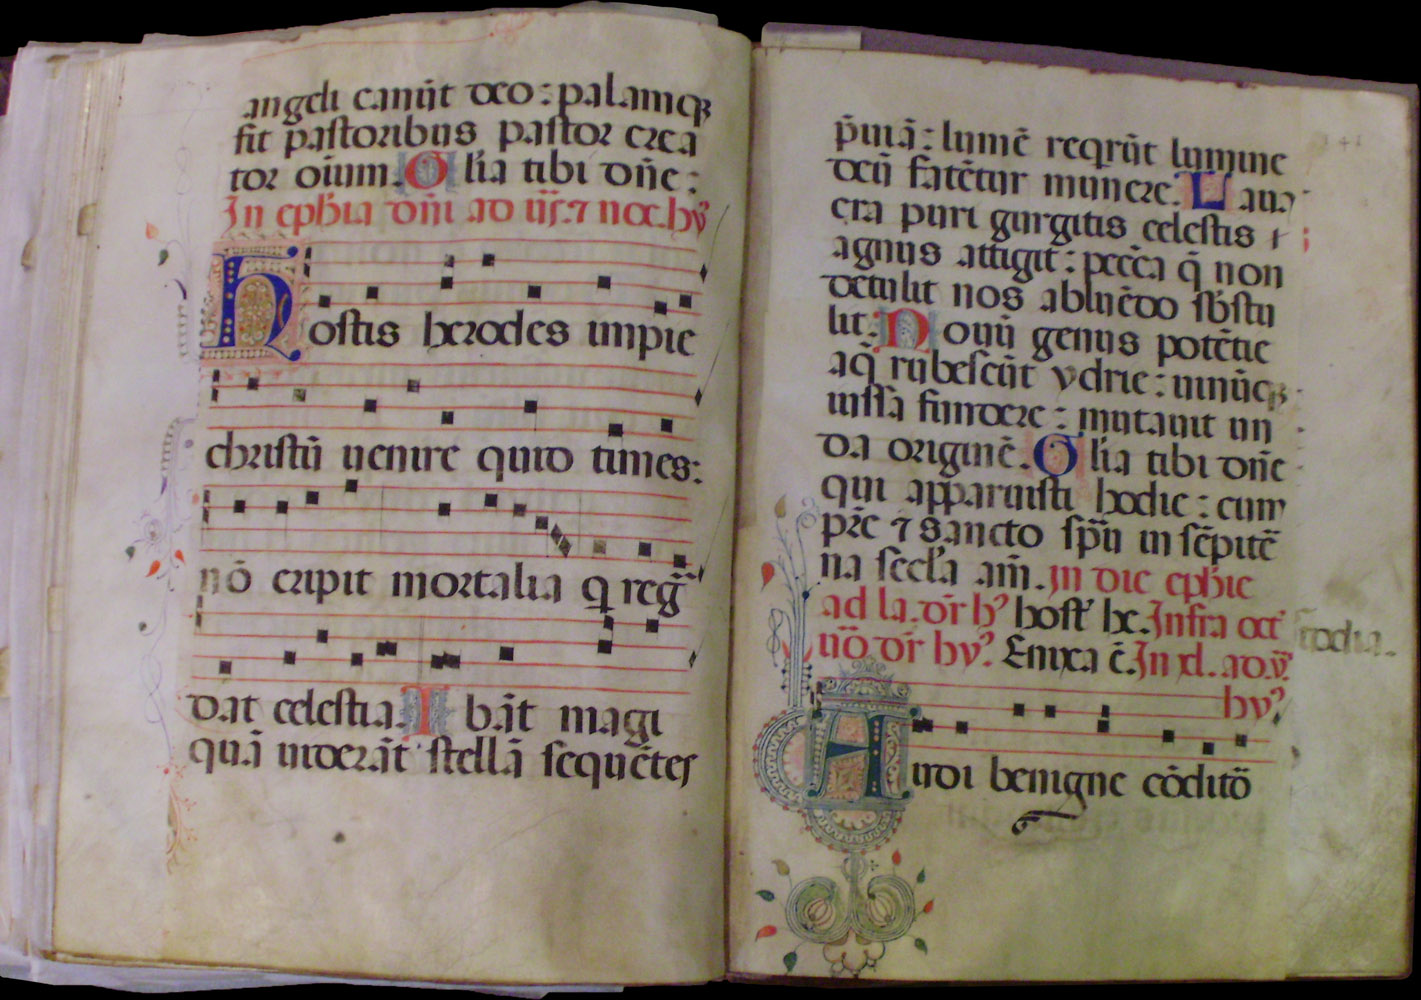 angeli canūt deo: palamqꝫ
fit pastoribus pastor crea
tor oīum. Glīa tibi dn̄e:
In ep̄hīa dnī ad iij. ⁊ noc. hy᷒
Hostis herodes impie
christū uenire quid times:
nō eripit mortalia q̄ reg̃
dat celestia. Ibāt magi
quā uiderāt stellā sequētes
p̄uiā: lumē reqrūt lumine
deū fatētur munere. Laua
cra puri gurgitis celestis
agnus attigit: pcc̄ā q̄ non
detulit nos abluēdo sb̄stu
lit. Nouū genus potētie
aq̄ rubescūt ydrie: uinūqꝫ
iussā fundere: mutauit un
da originē. Glīa tibi dn̄e
qui apparuisti hodie: cum
pr̄e ⁊ sancto sp̄u in sēpitē
na secl̄a am̄. In die ep̄hīe
ad la. dr̄ h᷒ host' hc. Infra oct'
nō dr̄ hy᷒. Enixa ē. In xl. ad v̄.
hy᷒
Audi benigne cōditō